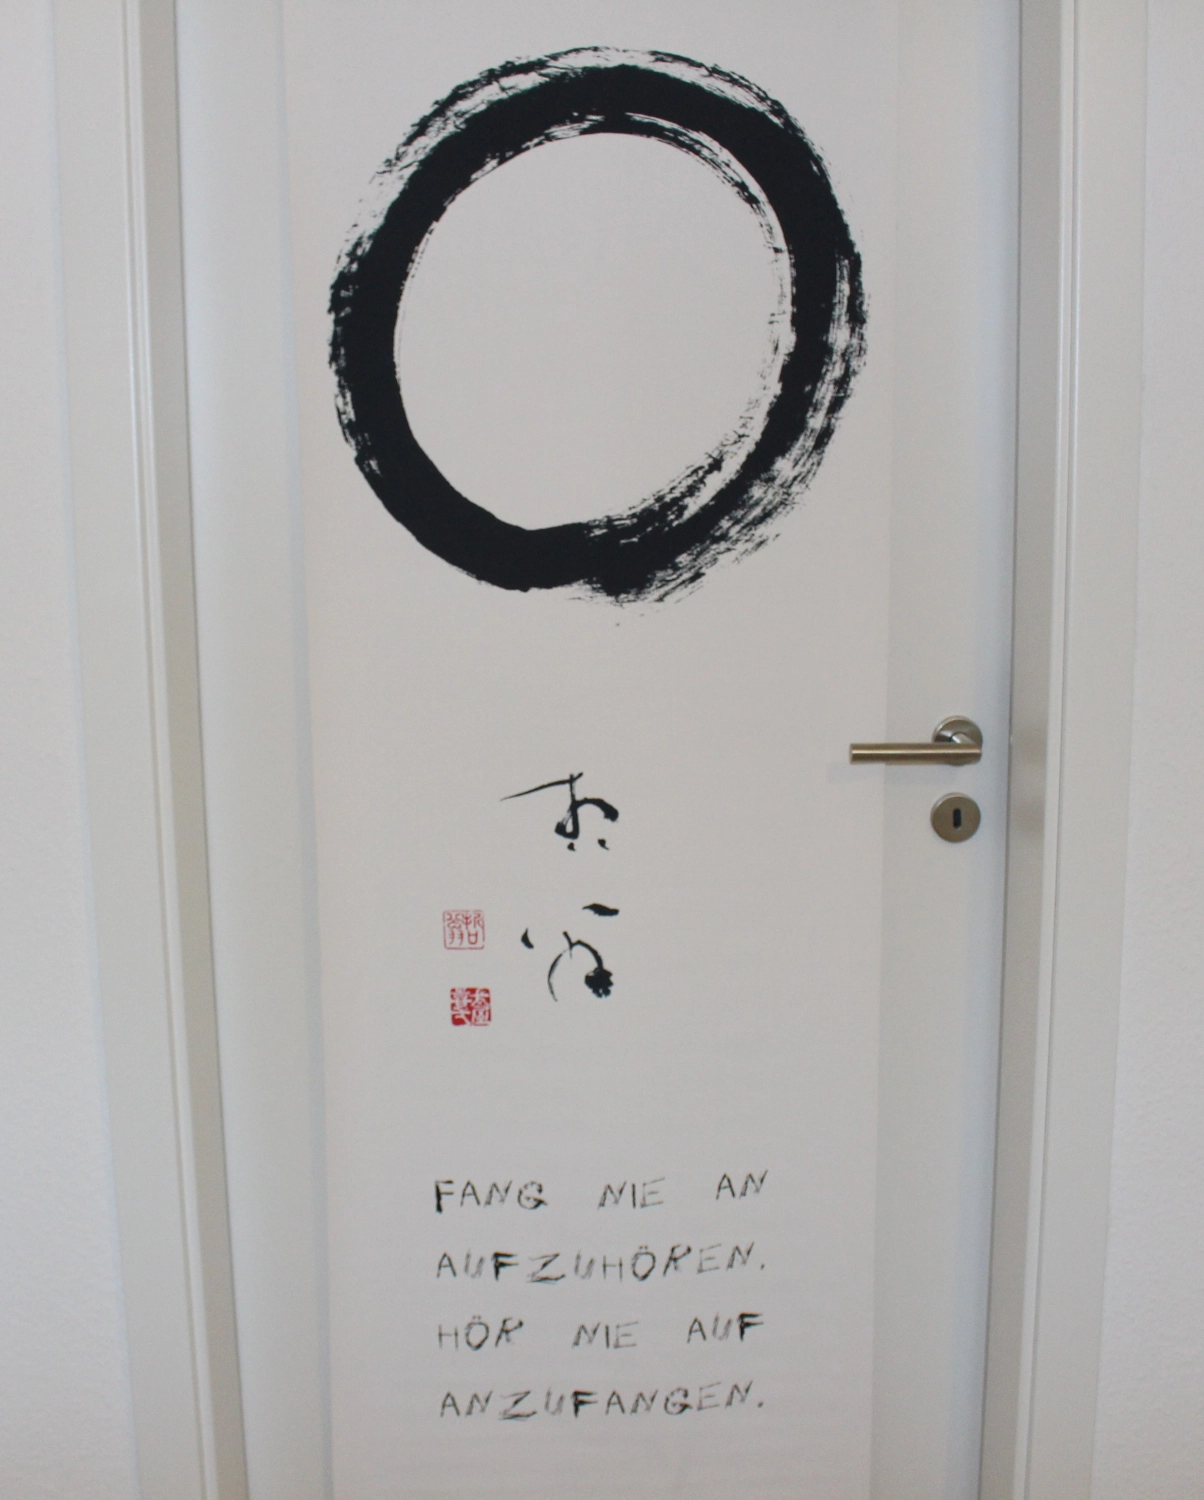 FANG NIE AN
AUFZUHÖREN.
HÖR NIE AUF
ANZUFANGEN.